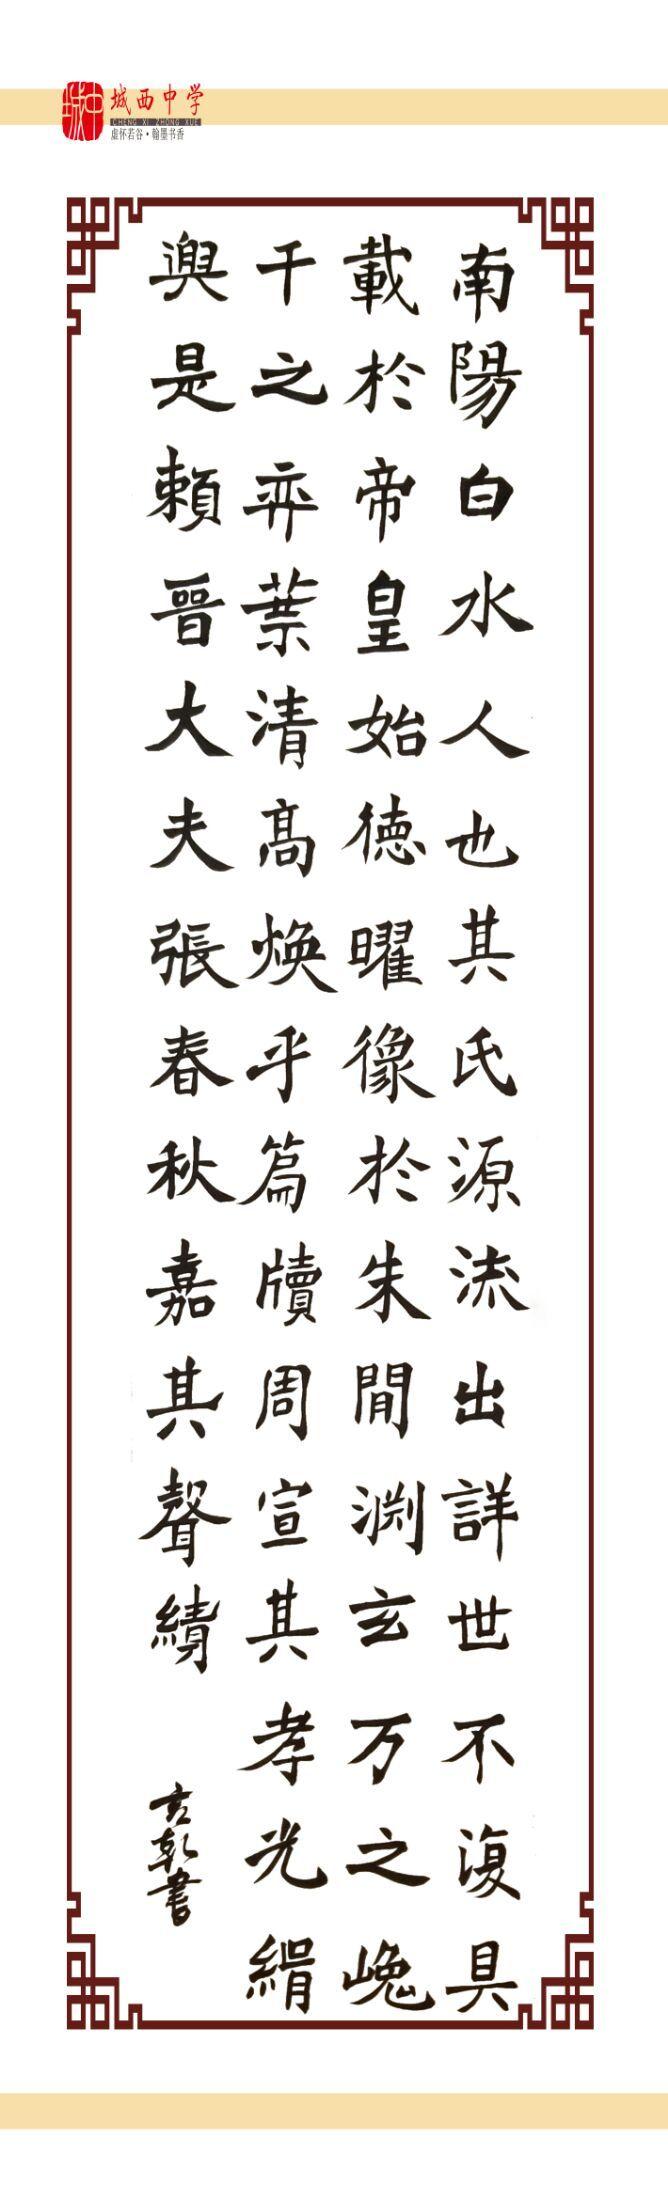 城西中学
CHENG XI ZHONG XUE
虚怀若谷·翰墨书香
南陽白水人也其氏源流出詳世不復具
載於帝皇始德曜像於朱閒渊玄万之
千之弈葉清高煥乎篇牘周宣其孝光緝
興是賴晉大夫張春秋嘉其聲績
書